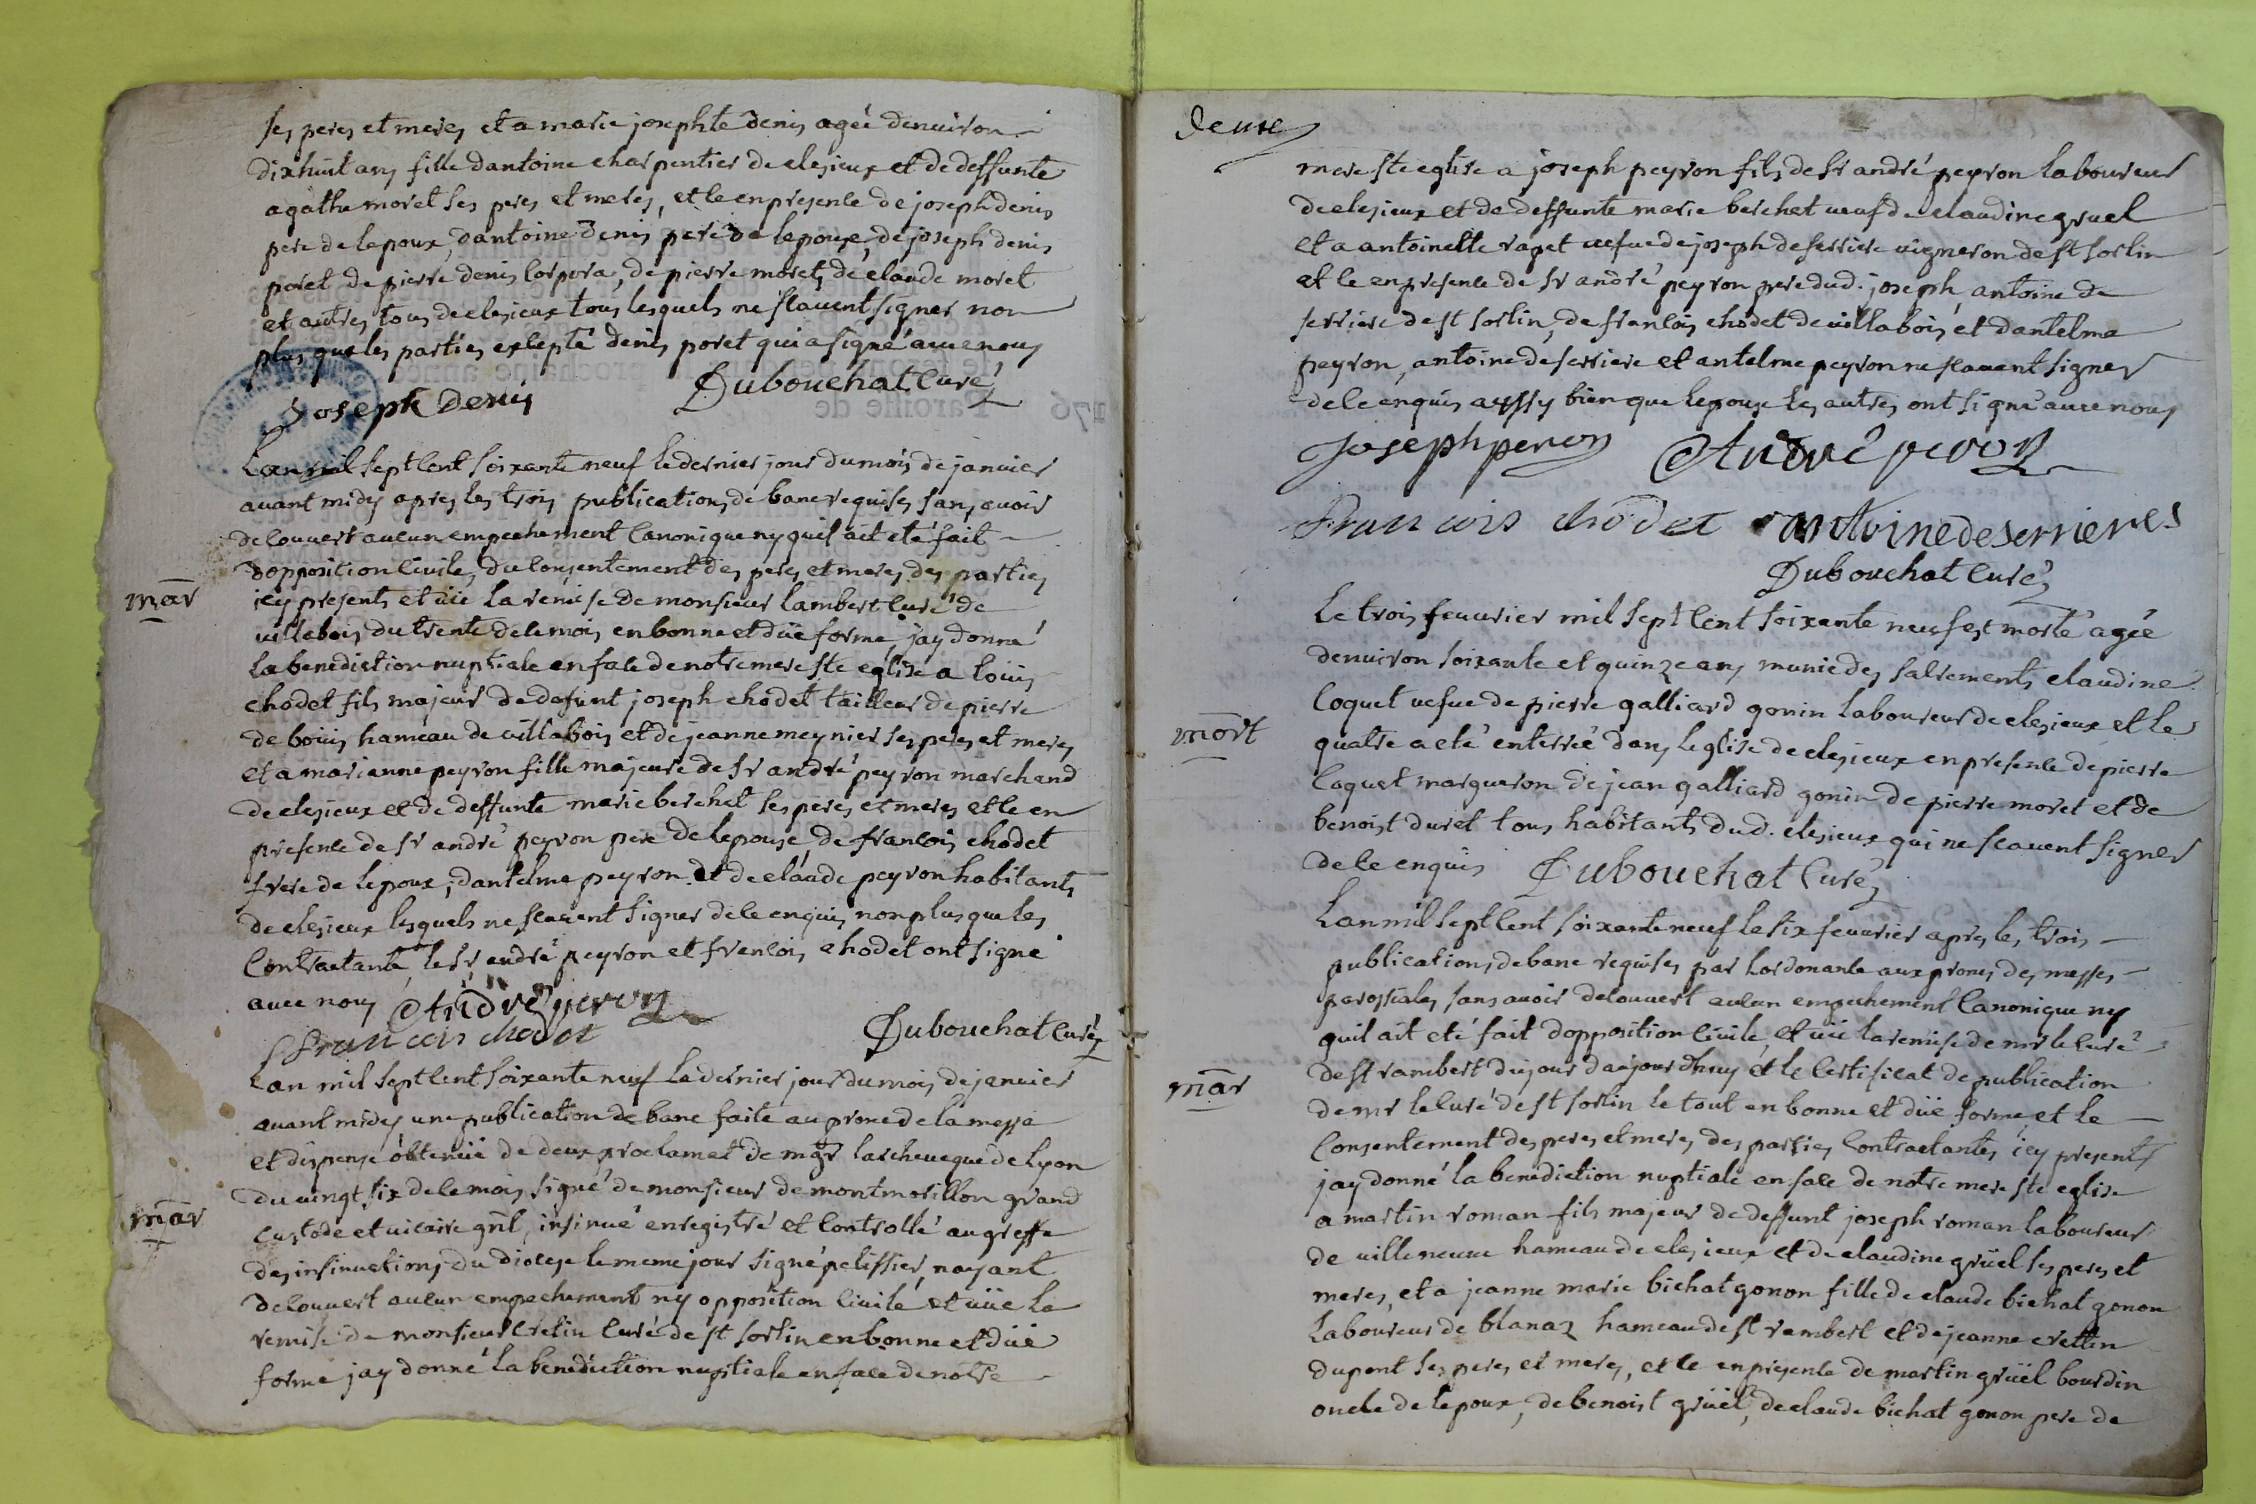 ses peres et meres et a marie josephte denis agée denuiron
dixhuit ans fille dantoine charpentier de clesieux et de deffunte
agathe moret ses peres et meres, et le en presence de joseph denis
pere de lepoux, dantoine denis pere de lepouse, de joseph denis
poret de pierre denis corpora, de pierre moret, de claude moret
et autres tous de clesieux tous lesquels ne scauent signer non
plus que les parties excepté denis poret qui a signé auec nous
Joseph Denis Dubouchat curé
Lan mil sept cent soixante neuf le dernier jour du mois de januier
auant midy apres les trois publications de banc requises sans auoir
decouuert aucun empechement canonique ny quil ait eté fait
dopposition ciuile, du consentement des peres et meres des parties
mar
icy presents et vüe la remise de monsieur lambert curé de
villebois du trente de ce mois en bonne et düe forme, jay donné
la benediction nuptiale en face de notre mere ste eglise a louis
chodet fils majeur de defunt joseph chodet tailleur de pierre
de bouis hameau de villabois et de jeanne meynier ses peres et meres
et a marianne peyron fille majeure de sr andré peyron marchand
de clesieux et de deffunte marie berchet ses peres et meres et le en
presence de sr andré peyron pere de lepouse de francois chodet
frere de lepoux, dantelme peyron et de claude peyron habitants
de clesieux lesquels ne scauent signer de ce enquis non plus que les
contractants, le sr andré peyron et francois chodet ont signé
auec nous André peron
francois chodet Dubouchat curé
Lan mil sept cent soixante neuf le dernier jour du mois de januier
auant midy une publication de banc faite au prone de la messe
et dispense obtenüe de deux proclamat de mgr larcheueque de Lyon
du vingt six de ce mois signé de monsieur de montmorillon grand
mar
custode et vicaire gnl, insinué enregistré et controllé au greffe
des insinuations du diocese le meme jour signé pelissier, nayant
decouuert aucun empechement ny opposition ciuile et vüe la
remise de monsieur cretin curé de st sorlin en bonne et düe
forme jay donné la benediction nuptiale en face de notre
deux
mere ste eglise a joseph peyron fils de sr andré peyron laboureur
de clesieux et de deffunte marie berchet veuf de claudine gruel
et a antoinette rapet vefue de joseph deserriere vigneron de st sorlin
et le en presence de sr andré peyron pere dud. joseph, antoine de
serriere de st sorlin, de francois chodet de villabois et dantelme
peyron, antoine deserriere et antelme peyron ne scauent signer
de ce enquis aussy bien que lepoux les autres ont signé auec nous
Joseph peron André peron
Francois chodet antoine deserrieres
Dubouchat curé
Le trois feuurier mil sept cent soixante neuf est morte agée
denuiron soixante et quinze ans munie des sacrements claudine
coquet vefue de pierre galliard gonin laboureur de clesieux et le
mort
quatre a eté enterrée dans leglise de clesieux en presence de pierre
coquet margueron de jean galliard gonin de pierre moret et de
benoist duret tous habitants dud. clesieux qui ne scauent signer
de ce enquis Dubouchat curé
Lan mil sept cent soixante neuf le six feuurier apres les trois
publications de banc requises par lordonance aux prones des messes
parossiales, sans auoir decouuert aucun empechement canonique ny
quil ait eté fait dopposition ciuile, et vüe la remise de mr le curé
de st rambert du jour daujourdhuy et le certificat de publication
mar
de mr le curé de st sorlin le tout en bonne et düe forme, et le
consentement des peres et meres des parties contractantes icy presents
jay donné la benediction nuptiale en face de notre mere ste eglise
a martin roman fils majeur de deffunt joseph roman laboureur
de villeneuue hameau de clesieux et de claudine grüel ses peres et
meres, et a jeanne marie bichat gonon fille de claude bichat gonon
laboureur de blanaz hameau de st rambert et de jeanne crettin
dupont ses peres et meres, et le en presence de martin grüel bourdin
oncle de lepoux, de benoist grüel, de claude bichat gonon pere de